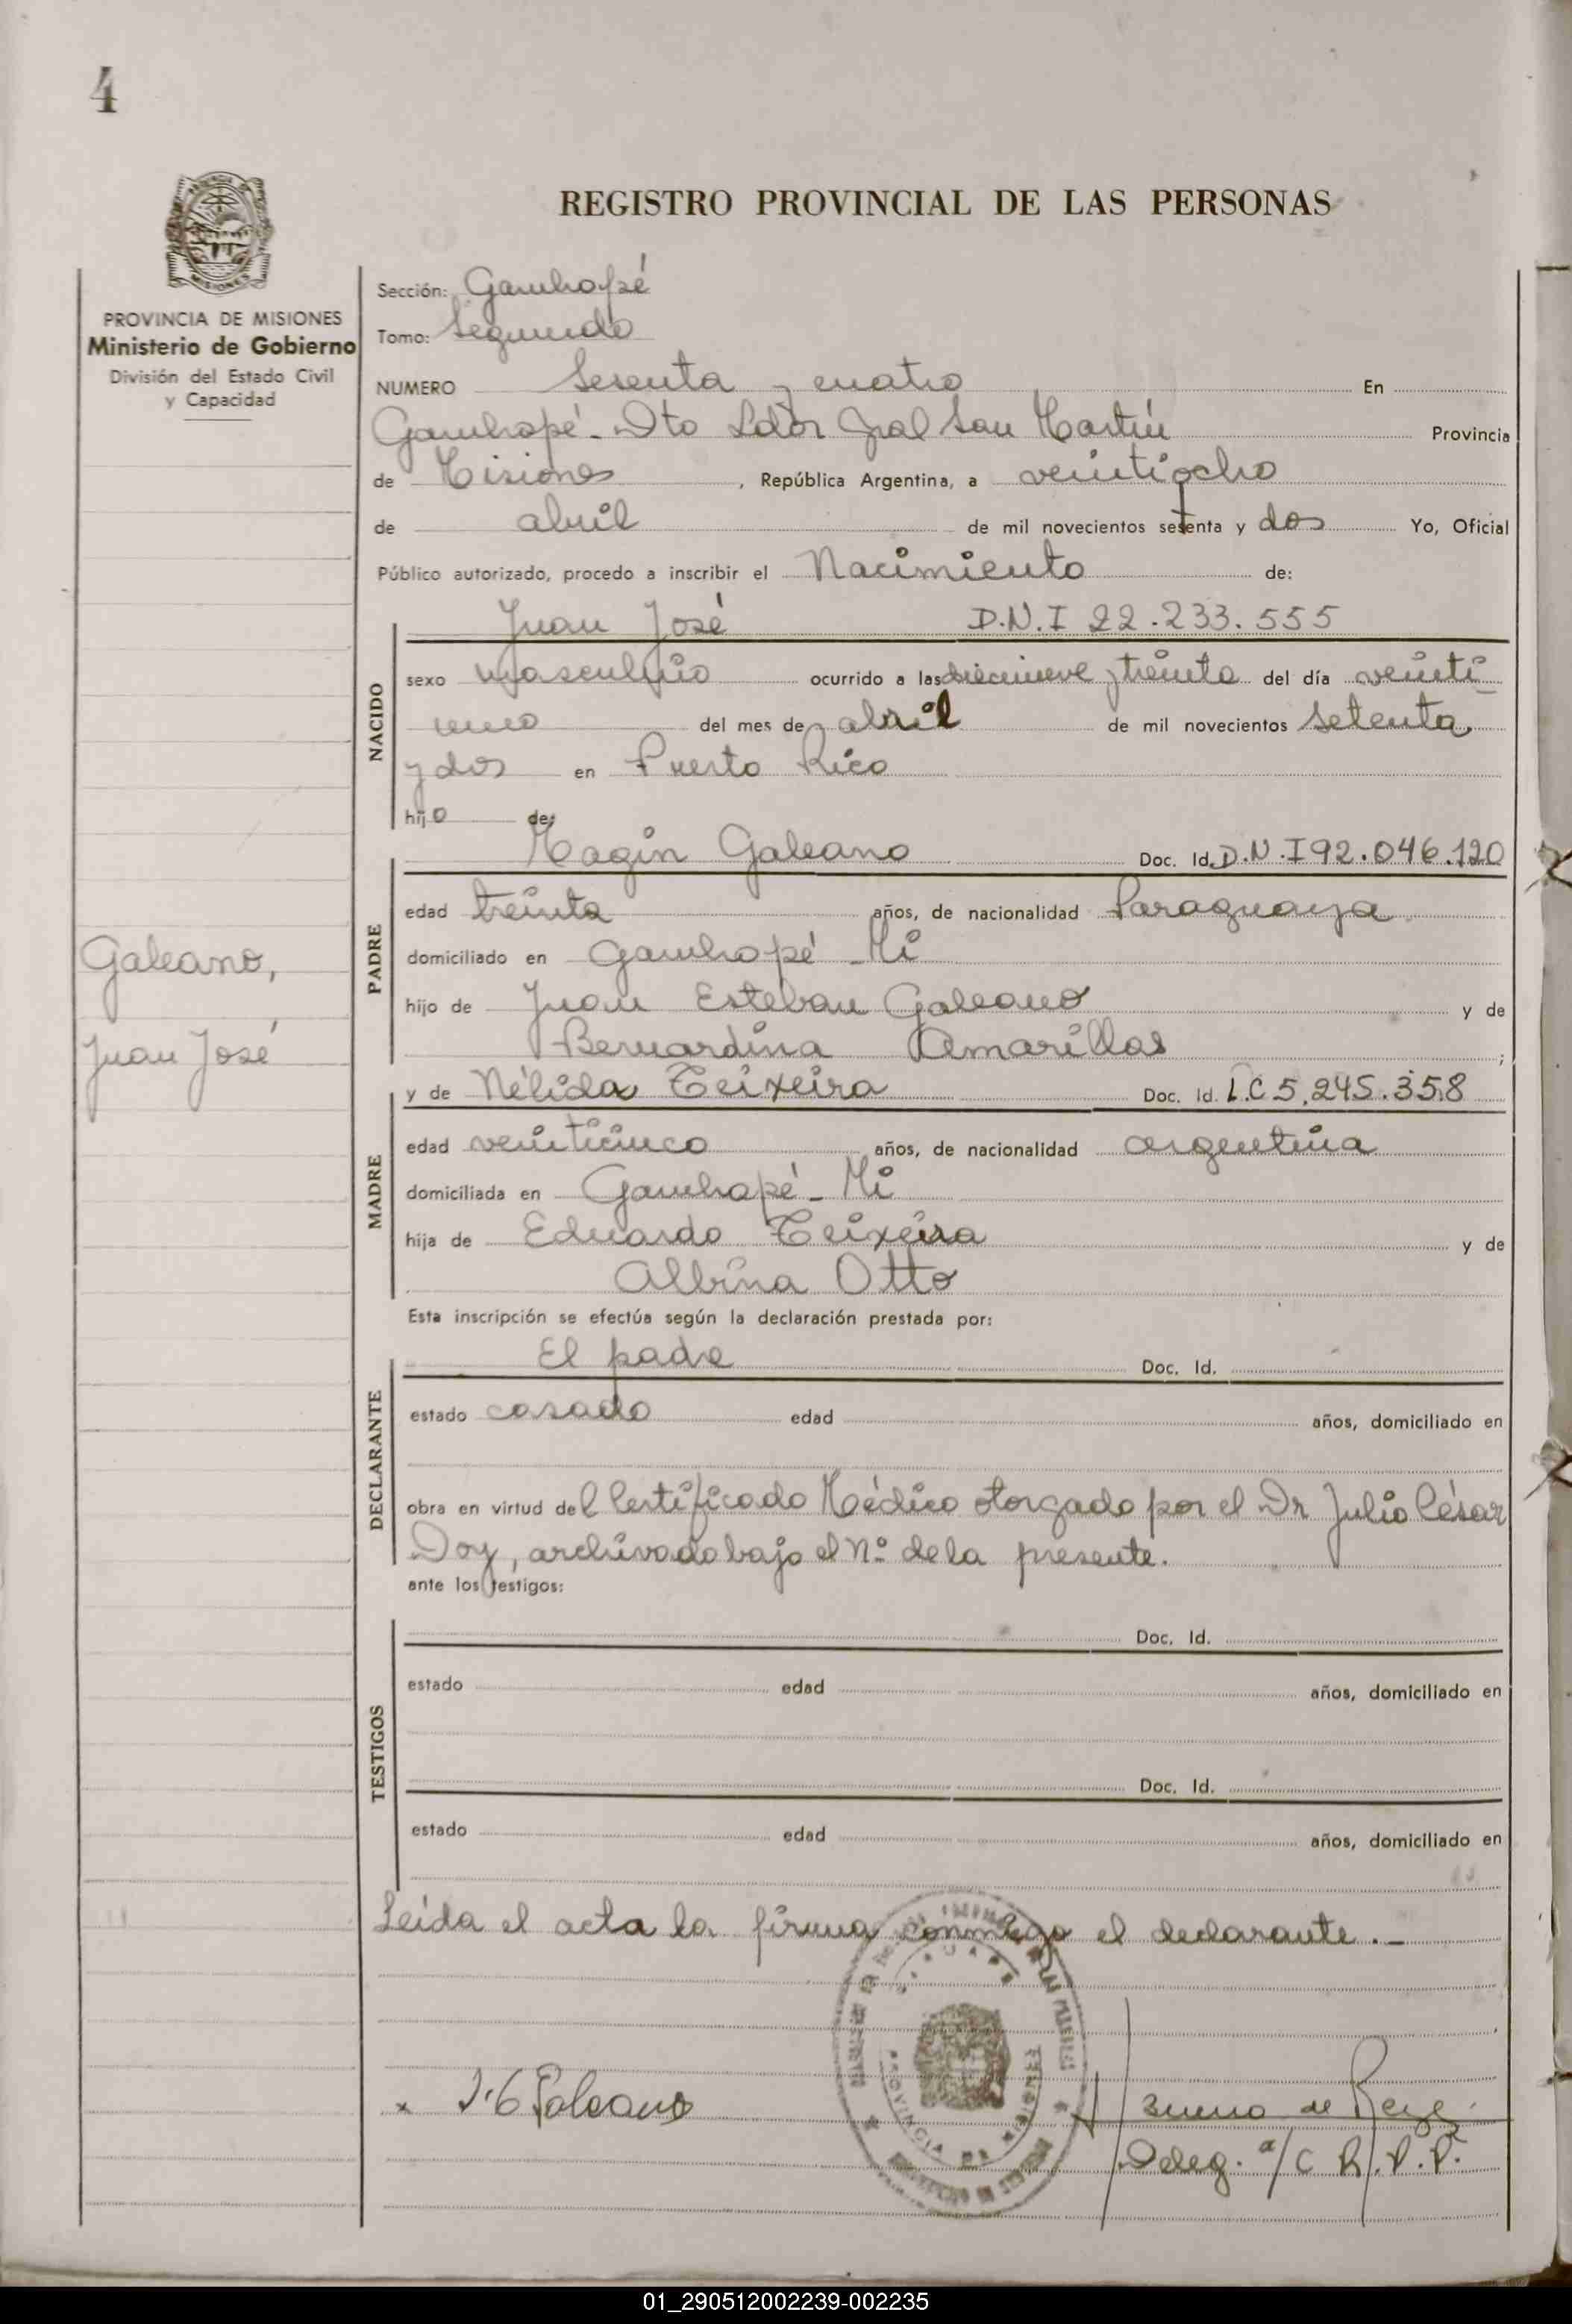 4
REGISTRO PROVINCIAL DE LAS PERSONAS
PROVINCIA DE MISIONES
Ministerio de Gobierno
División del Estado Civil
y Capacidad
Sección: Garuhapé
Tomo: Segundo
NUMERO Sesenta y cuatro En
Garuhapé - Dto Ldor Gral San Martín Provincia
de Misiones , República Argentina, a veintiocho
de abril de mil novecientos setenta y dos Yo, Oficial
Público autorizado, procedo a inscribir el Nacimiento de:
NACIDO
Juan José D.N.I 22.233.555
sexo masculino ocurrido a las diecinueve y treinta del día veinti
uno del mes de abril de mil novecientos setenta
y dos en Puerto Rico
hijo de:
Galeano,
Juan José
PADRE
Magin Galeano Doc. Id. D.N.I 92.046.120
edad treinta años, de nacionalidad Paraguaya
domiciliado en Garuhapé - Mi
hijo de Juan Esteban Galeano y de
Bernardina Amarillas ;
MADRE
y de Nélida Teixeira Doc. Id. L.C 5.245.358
edad veinticinco años, de nacionalidad argentina
domiciliada en Garuhapé - Mi
hija de Eduardo Teixeira y de
Albina Otto
Esta inscripción se efectúa según la declaración prestada por:
DECLARANTE
El padre Doc. Id.
estado casado edad años, domiciliado en
obra en virtud del Certificado Médico otorgado por el Dr Julio César
Doy, archivado bajo el Nº de la presente.
ante los testigos:
TESTIGOS
Doc. Id.
estado edad años, domiciliado en
Doc. Id.
estado edad años, domiciliado en
Leída el acta la firma conmigo el declarante.-
x Galeano
PROVINCIA DE MISIONES
Bueno de
Deleg. a/c R.P.P.
01_290512002239-002235